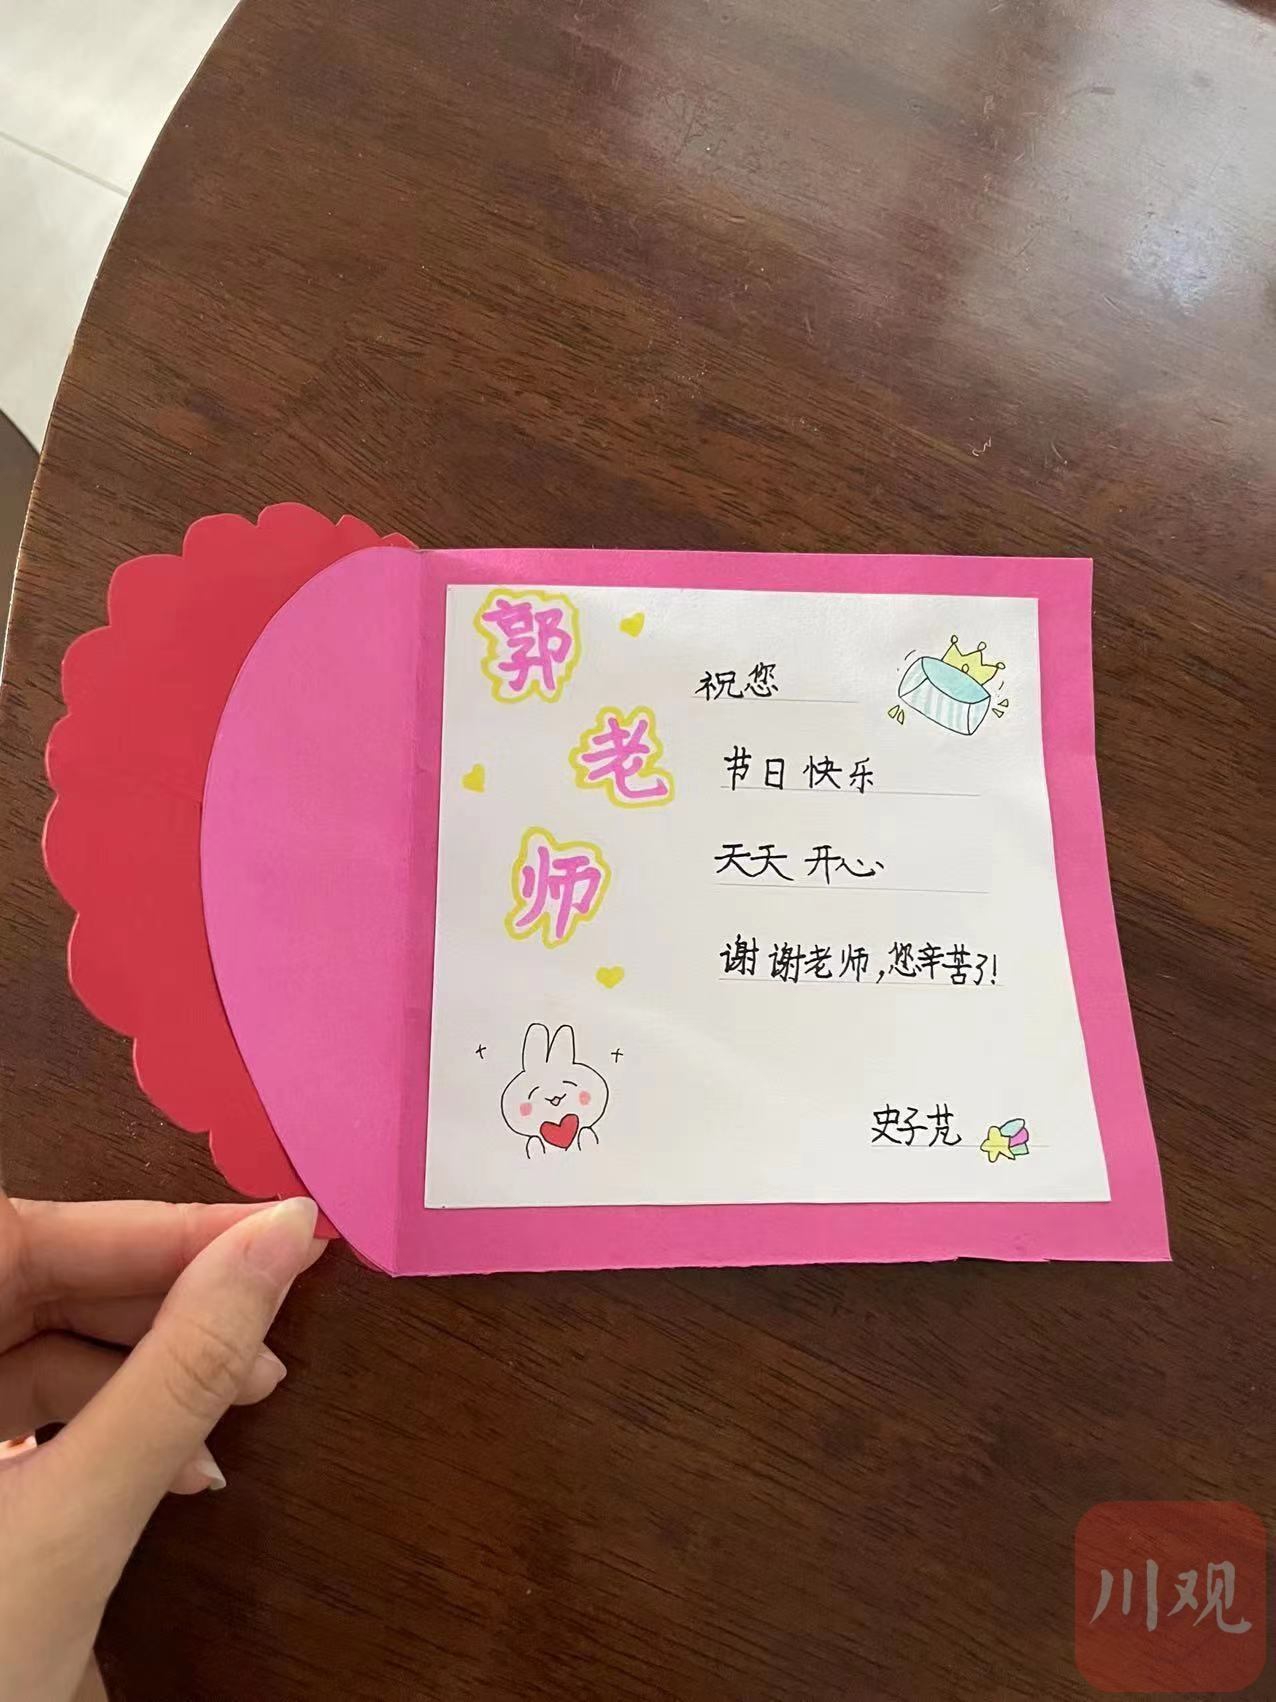 郭老师
祝您
节日快乐
天天开心
谢谢老师,您辛苦了!
史子芃
川观